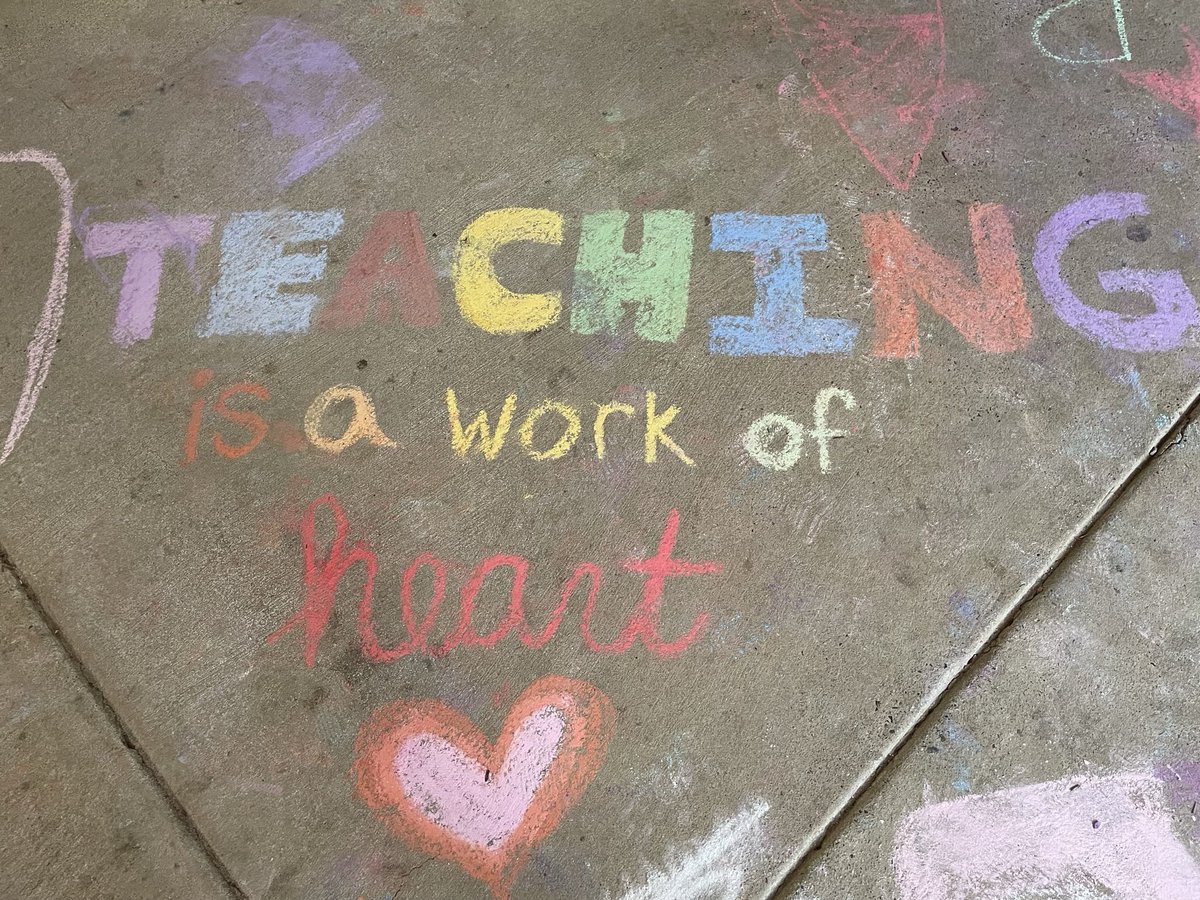 TEACHING
is a work of
heart